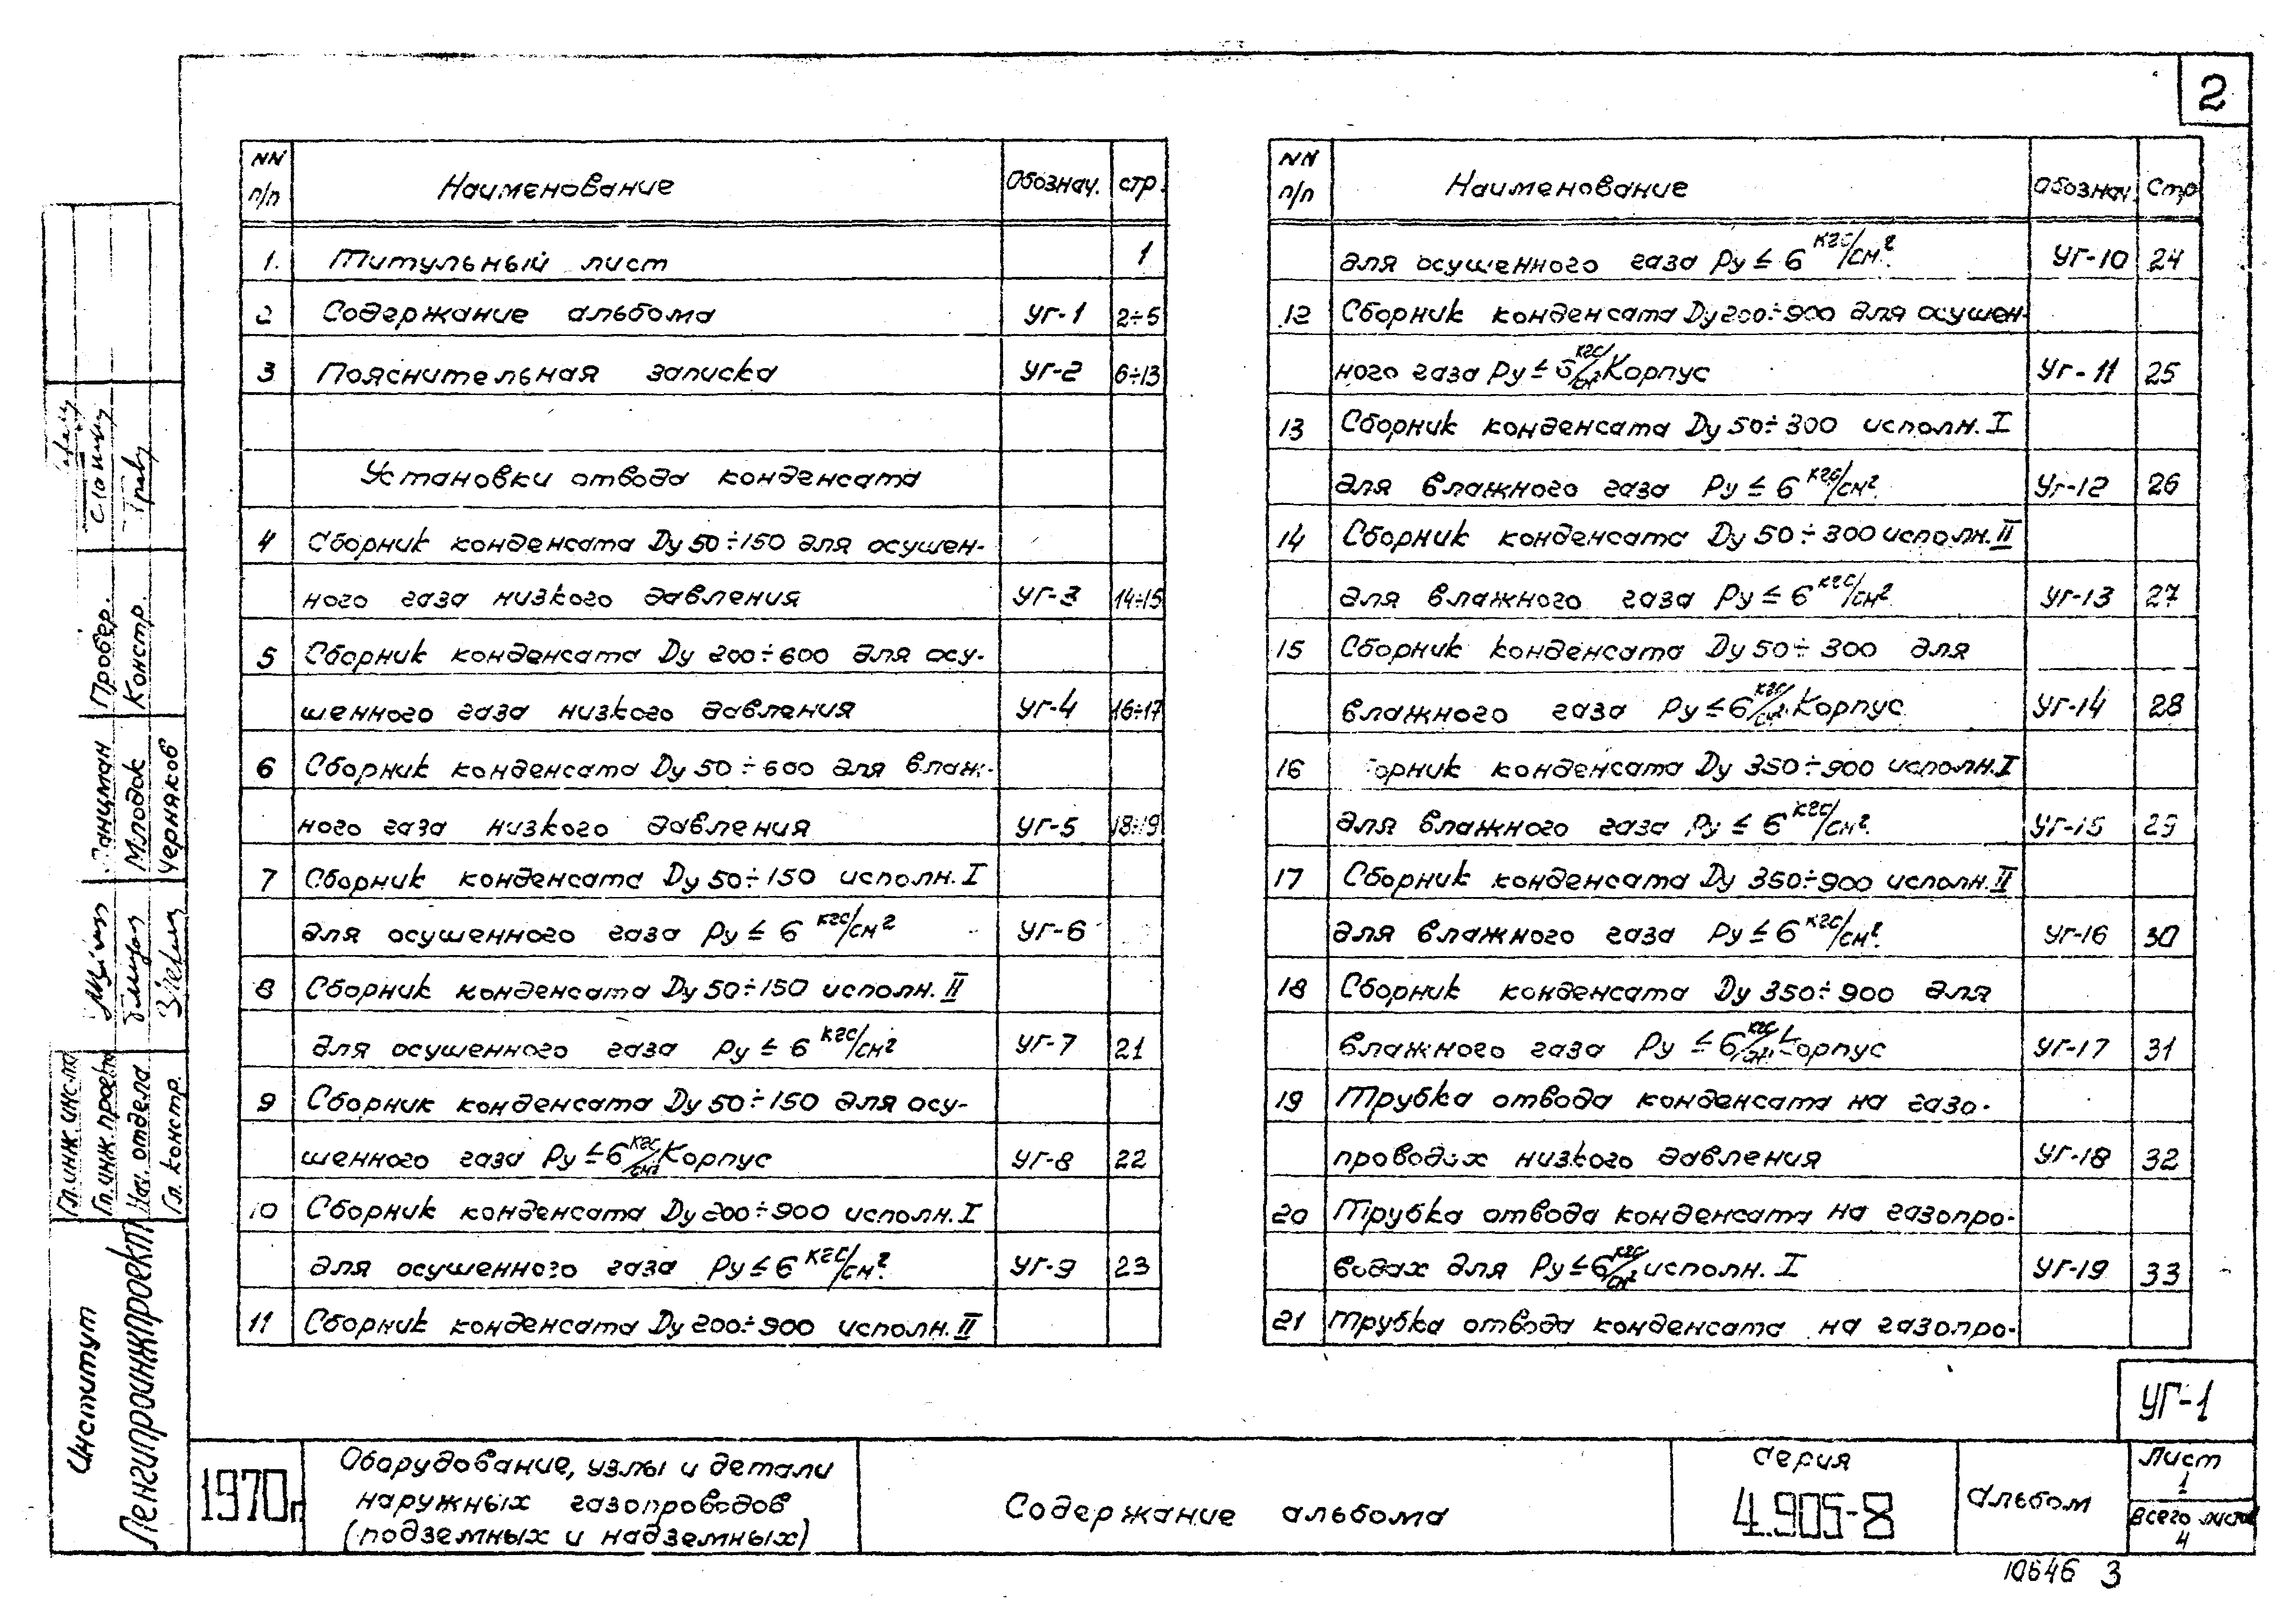 2
NN п/п Наименование Обознач. стр.
1. Титульный лист 1
2 Содержание альбома УГ-1 2÷5
3 Пояснительная записка УГ-2 6÷13
Установки отвода конденсата
4 Сборник конденсата Dу 50÷150 для осушен-
ного газа низкого давления УГ-3 14÷15
5 Сборник конденсата Dу 200÷600 для осу-
шенного газа низкого давления УГ-4 16÷17
6 Сборник конденсата Dу 50÷600 для влаж-
ного газа низкого давления УГ-5 18÷19
7 Сборник конденсата Dу 50÷150 исполн. I
для осушенного газа Ру ≤ 6 кгс/см² УГ-6
8 Сборник конденсата Dу 50÷150 исполн. II
для осушенного газа Ру ≤ 6 кгс/см² УГ-7 21
9 Сборник конденсата Dу 50÷150 для осу-
шенного газа Ру ≤ 6 кгс/см² Корпус УГ-8 22
10 Сборник конденсата Dу 200÷900 исполн. I
для осушенного газа Ру ≤ 6 кгс/см² УГ-9 23
11 Сборник конденсата Dу 200÷900 исполн. II
NN п/п Наименование Обознач. Стр
для осушенного газа Ру ≤ 6 кгс/см² УГ-10 24
12 Сборник конденсата Dу 200÷900 для осушен-
ного газа Ру ≤ 6 кгс/см² Корпус УГ-11 25
13 Сборник конденсата Dу 50÷300 исполн. I
для влажного газа Ру ≤ 6 кгс/см² УГ-12 26
14 Сборник конденсата Dу 50÷300 исполн. II
для влажного газа Ру ≤ 6 кгс/см² УГ-13 27
15 Сборник конденсата Dу 50÷300 для
влажного газа Ру ≤ 6 кгс/см² Корпус УГ-14 28
16 орник конденсата Dу 350÷900 исполн. I
для влажного газа Ру ≤ 6 кгс/см² УГ-15 29
17 Сборник конденсата Dу 350÷900 исполн. II
для влажного газа Ру ≤ 6 кгс/см² УГ-16 30
18 Сборник конденсата Dу 350÷900 для
влажного газа Ру ≤ 6 кгс/см² Корпус УГ-17 31
19 Трубка отвода конденсата на газо-
проводах низкого давления УГ-18 32
20 Трубка отвода конденсата на газопро-
водах для Ру ≤ 6 кгс/см² исполн. I УГ-19 33
21 Трубка отвода конденсата на газопро-
Институт
Ленгипроинжпроект
Гл. инж. инс-та
Гл. инж. проекта
Нач. отдела Млодок
Гл. констр. Черняков
Провер.
Констр.
УГ-1
1970г
Оборудование, узлы и детали
наружных газопроводов
(подземных и надземных)
Содержание альбома
Серия
4.905-8
Альбом
Лист
1
Всего листов
4
10646 3